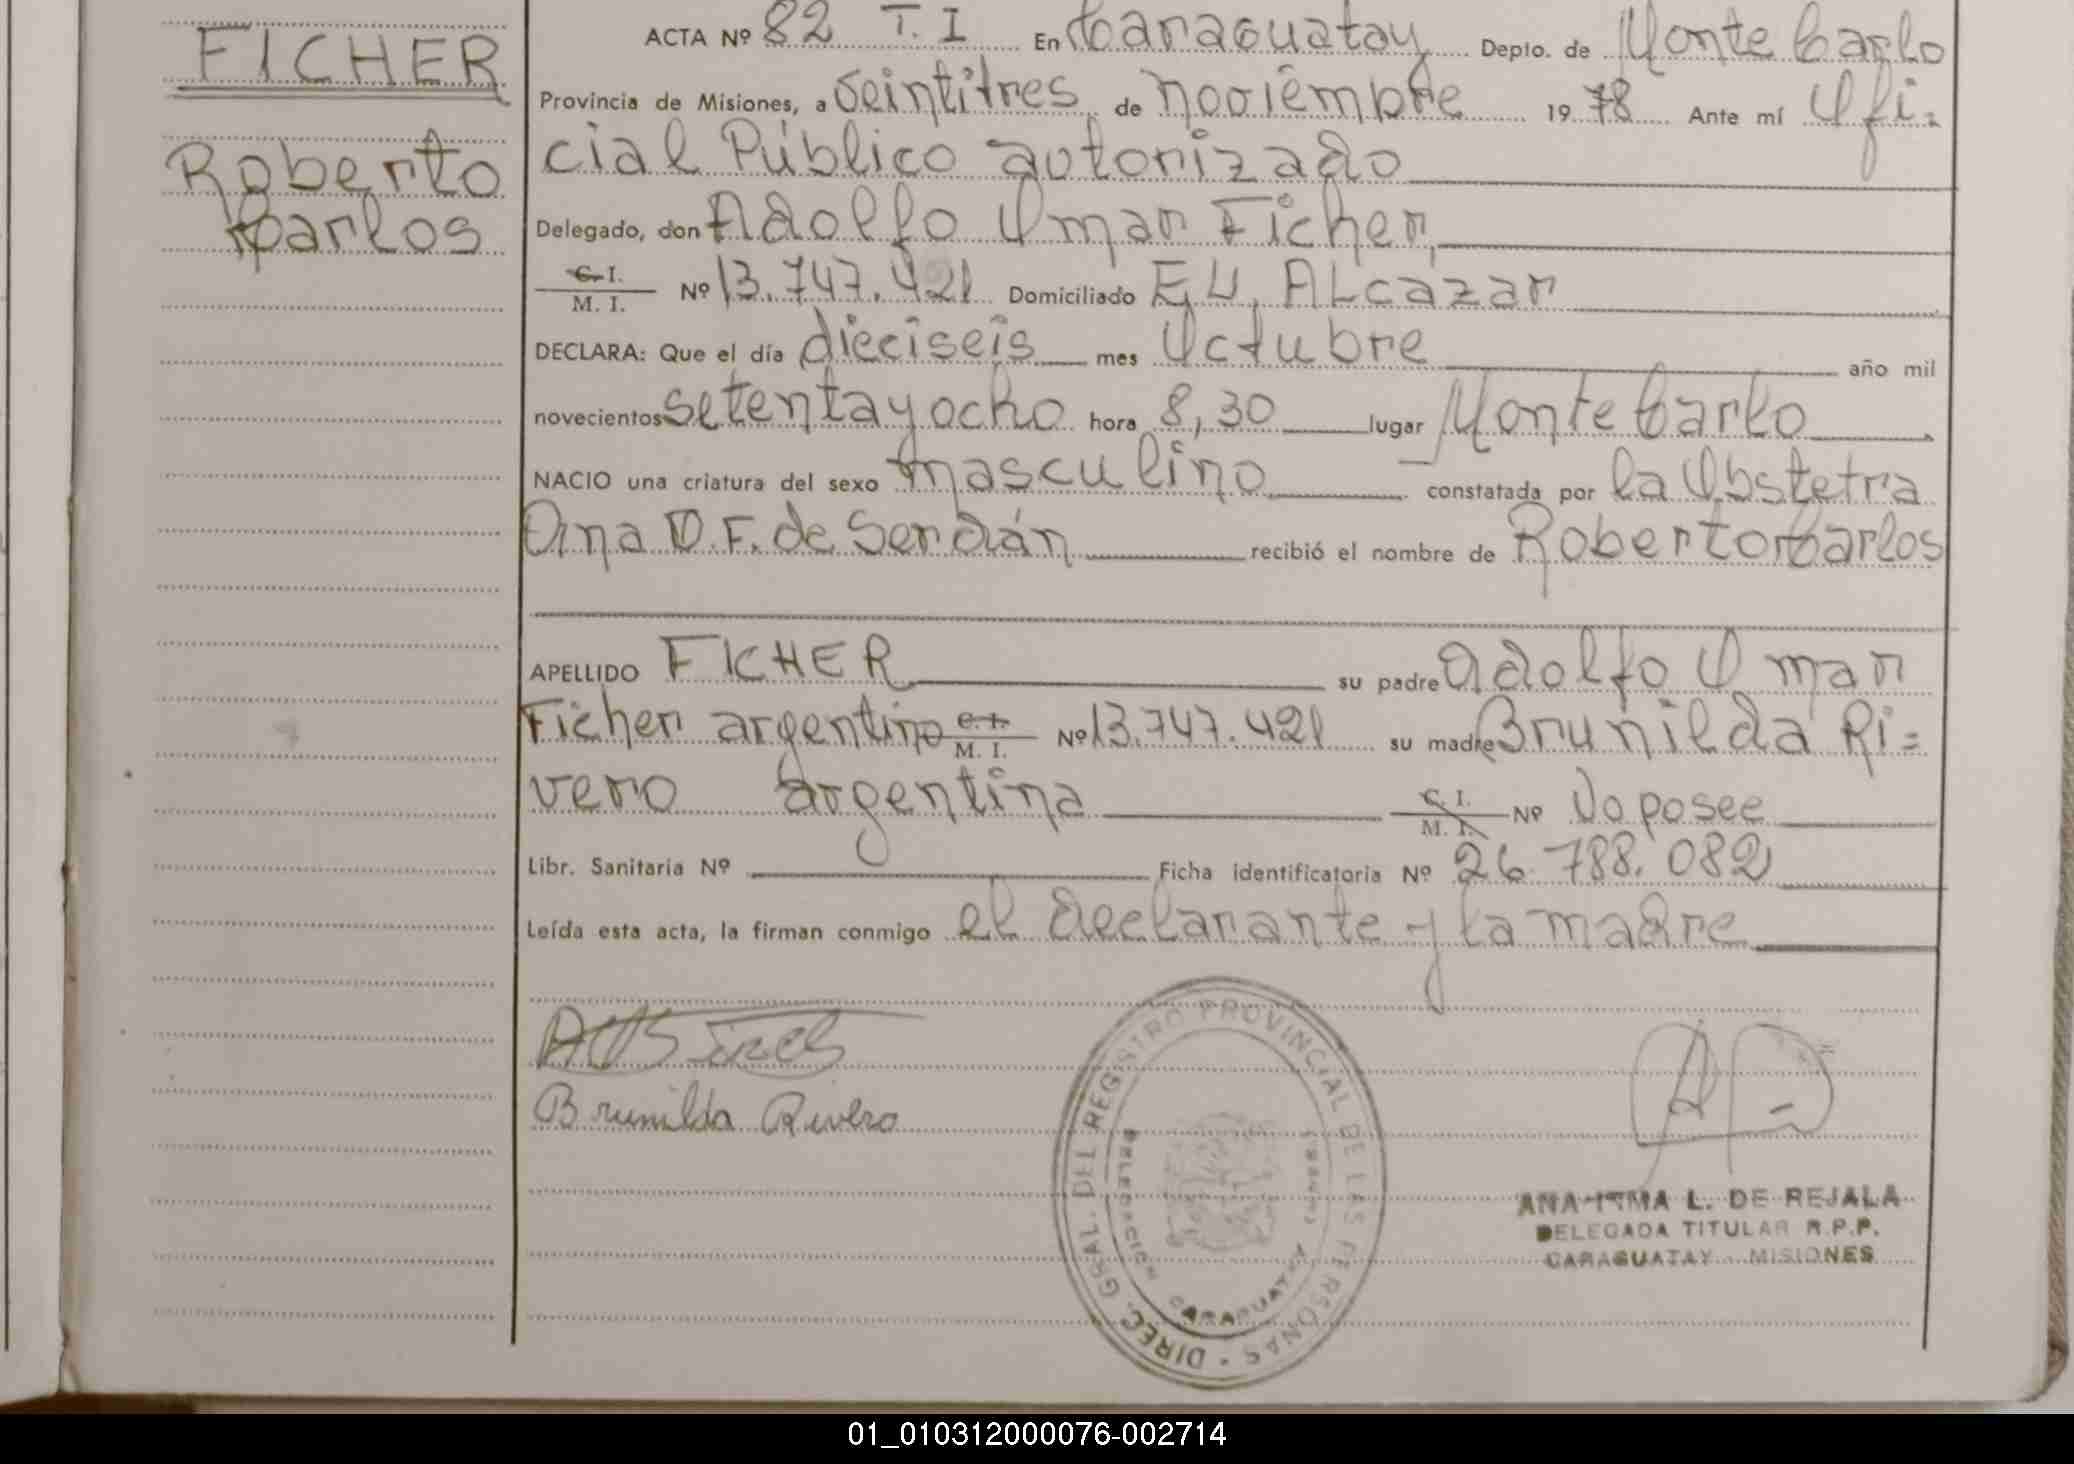 FICHER
Roberto
Carlos
ACTA Nº 82 T. I En Caraguatay Depto. de Monte Carlo
Provincia de Misiones, a veintitres de noviembre 1978 Ante mí Ofi-
cial Público autorizado
Delegado, don Adolfo Omar Ficher,
C. I.
M. I. Nº 13.747.421 Domiciliado EL ALcazar
DECLARA: Que el día dieciseis mes Octubre año mil
novecientos setentayocho hora 8,30 lugar Monte Carlo
NACIO una criatura del sexo masculino constatada por la Obstetra
Ana D.F. de Serdán recibió el nombre de Roberto Carlos
APELLIDO FICHER su padre Adolfo Omar
Ficher argentino C. I. M. I. Nº 13.747.421 su madre Brunilda Ri=
vero argentina C. I. M. I. Nº No posee
Libr. Sanitaria Nº Ficha identificatoria Nº 26.788.082
Leída esta acta, la firman conmigo el declarante y la madre
Brunilda Rivero
DIREC. GRAL. DEL REGISTRO PROVINCIAL DE LAS PERSONAS
DELEGACION CARAGUATAY
ANA IRMA L. DE REJALA
DELEGADA TITULAR R.P.P.
CARAGUATAY - MISIONES
01_010312000076-002714